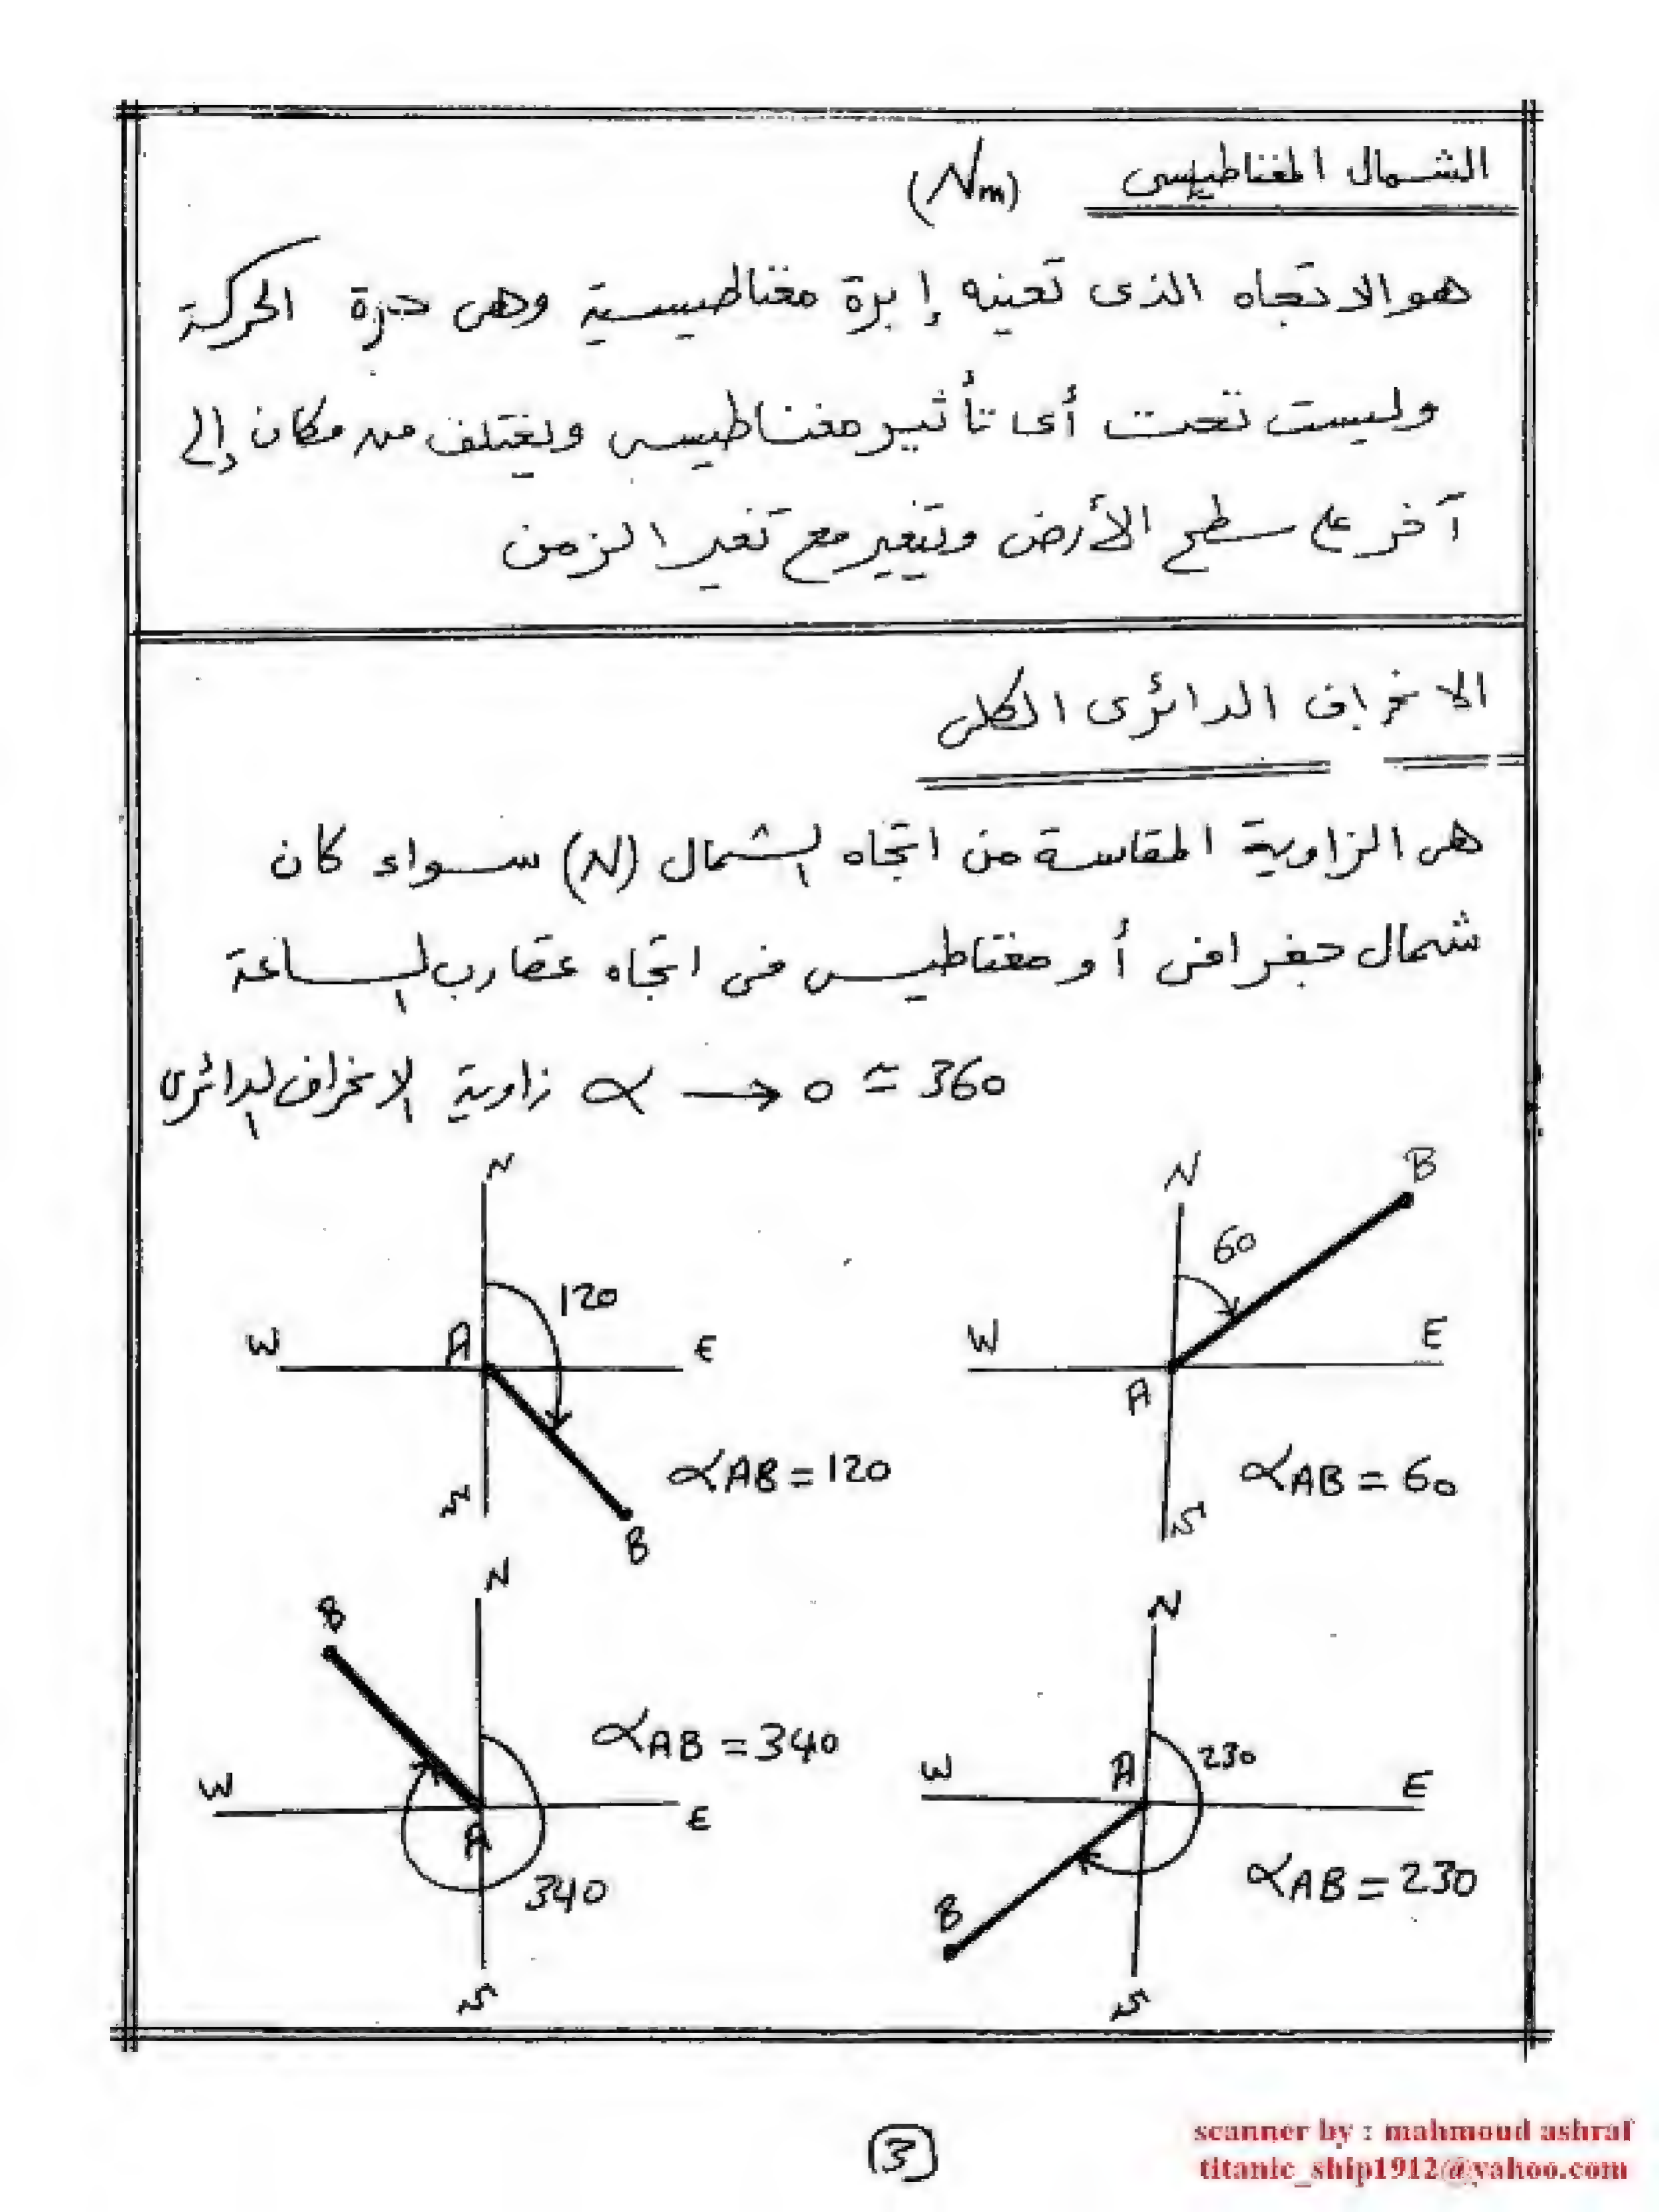 الشمال المغناطيسى (Nm)
هو الاتجاه الذى تعينه إبرة مغناطيسية وهى حرة الحركة
وليست تحت أى تأثير مغناطيسى ويختلف من مكان إلى
آخر على سطح الأرض ويتغير مع تغير الزمن
الانحراف الدائرى الكلى
هى الزاوية المقاسة من اتجاه الشمال (N) سواء كان
شمال جغرافى أو مغناطيسى فى اتجاه عقارب الساعة
زاوية الانحراف الدائرى α → 0 = 360
N
B
60
W
E
A
S
αAB = 60
N
120
W
A
E
S
B
αAB = 120
N
W
A
230
E
B
S
αAB = 230
N
B
αAB = 340
W
E
A
340
S
3
scanner by : mahmoud ashraf
titanic_ship1912@yahoo.com